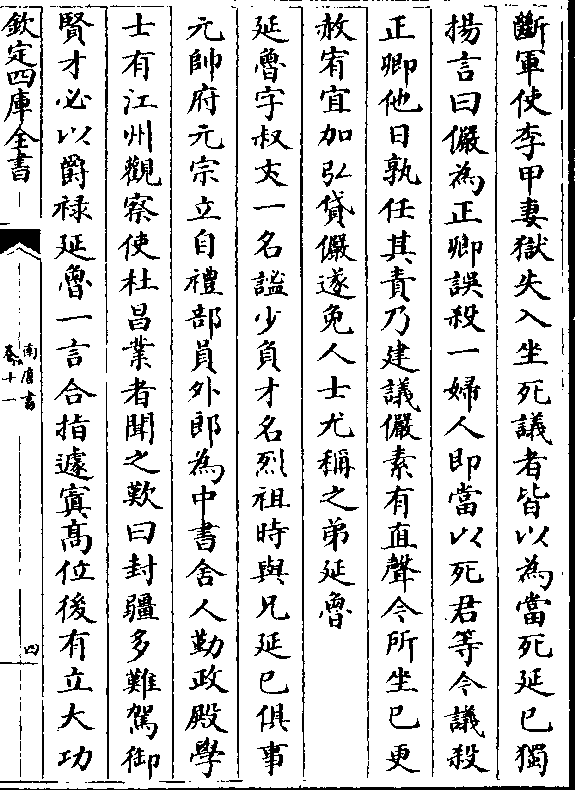 斷軍使李甲妻獄失入坐死議者皆以為當死延巳獨
揚言曰儼為正卿誤殺一婦人即當以死君等今議殺
正卿他日孰任其責乃建議儼素有直聲今所坐已更
赦宥宜加弘貸儼遂免人士尤稱之弟延魯
延魯字叔文一名謐少負才名烈祖時與兄延巳俱事
元帥府元宗立自禮部員外郎為中書舍人勤政殿學
士有江州觀察使杜昌業者聞之歎曰封疆多難駕御
賢才必以爵祿延魯一言合指遽寘高位後有立大功
欽定四庫全書
南唐書
卷十一
四